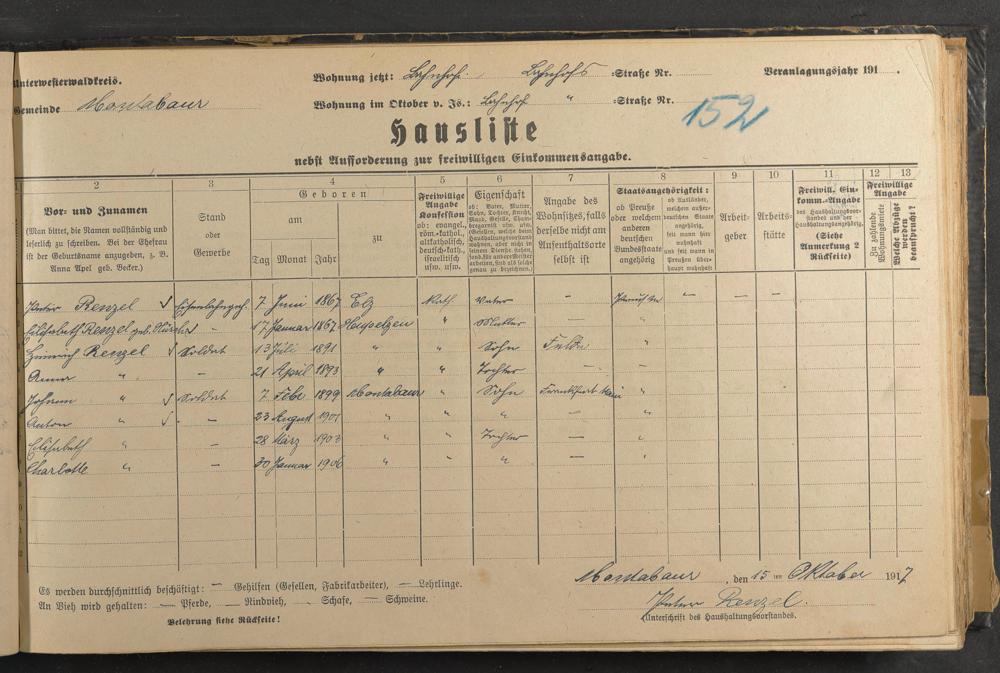 Unterwesterwaldkreis.
Wohnung jetzt: Bahnhof. Bahnhofs =Straße Nr.
Veranlagungsjahr 191 .
Gemeinde Montabaur
Wohnung im Oktober v. Js.: Bahnhof " =Straße Nr.
152
Hausliste
nebst Aufforderung zur freiwilligen Einkommensangabe.
1 2 3 4 5 6 7 8 9 10 11 12 13
Vor- und Zunamen
(Man bittet, die Namen vollständig und
leserlich zu schreiben. Bei der Ehefrau
ist der Geburtsname anzugeben, z. B.
Anna Apel geb. Becker.)
Stand
oder
Gewerbe
Geboren
am
zu
Tag Monat Jahr
Freiwillige
Angabe
Konfession
ob: evangel.,
röm.-kathol.,
altkatholisch,
deutsch-kath.,
israelitisch
usw. usw.
Eigenschaft
ob: Vater, Mutter,
Sohn, Tochter, Knecht,
Magd, Geselle, Cham-
bregarnist usw. usw.
Angabe des
Wohnsitzes, falls
derselbe nicht am
Aufenthaltsorte
selbst ist
Staatsangehörigkeit:
ob Preuße
oder welchem
anderen
deutschen
Bundesstaate
angehörig
ob Ausländer,
welchem außer-
deutschen Staate
angehörig,
seit wann hier
wohnhaft
und seit wann in
Preußen über-
haupt wohnhaft
Arbeit-
geber
Arbeits-
stätte
Freiwill. Ein-
komm.-Angabe
des Haushaltungsvor-
standes und der
Haushaltungsangehörig.
(Siehe
Anmerkung 2
Rückseite)
Freiwillige
Angabe
Zu zahlende
Wohnungsmiete
Welche Abzüge
werden
beansprucht?
Peter Renzel 7 Juni 1867 Elz Kath. Vater – – –
Elisabeth Renzel geb. – 17 Januar 1867 " Mutter – "
Heinrich Renzel Soldat 13 Juli 1891 " " Sohn Fulda "
Anna " – 21 April 1893 " " Tochter – "
Johann " Soldat 7 Febr 1899 Montabaur " Sohn Frankfurt Main "
Anton " – 23 August 1901 " " " – "
Elisabeth " – 28 März 1903 " " Tochter – "
Charlotte " – 30 Januar 1906 " " " – "
Es werden durchschnittlich beschäftigt: — Gehilfen (Gesellen, Fabrikarbeiter), — Lehrlinge.
An Vieh wird gehalten: — Pferde, — Rindvieh, - Schafe, — Schweine.
Belehrung siehe Rückseite!
Montabaur, den 15 ten Oktober 1917
Peter Renzel.
(Unterschrift des Haushaltungsvorstandes.